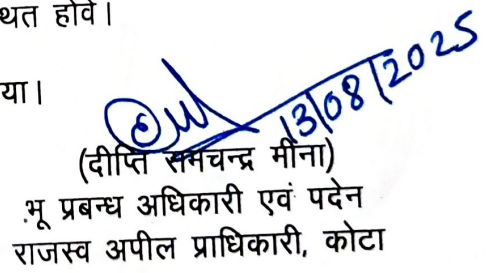 थत होवे।
या।
13/08/2025
(दीप्ति रामचन्द्र मीना)
भू प्रबन्ध अधिकारी एवं पदेन
राजस्व अपील प्राधिकारी, कोटा